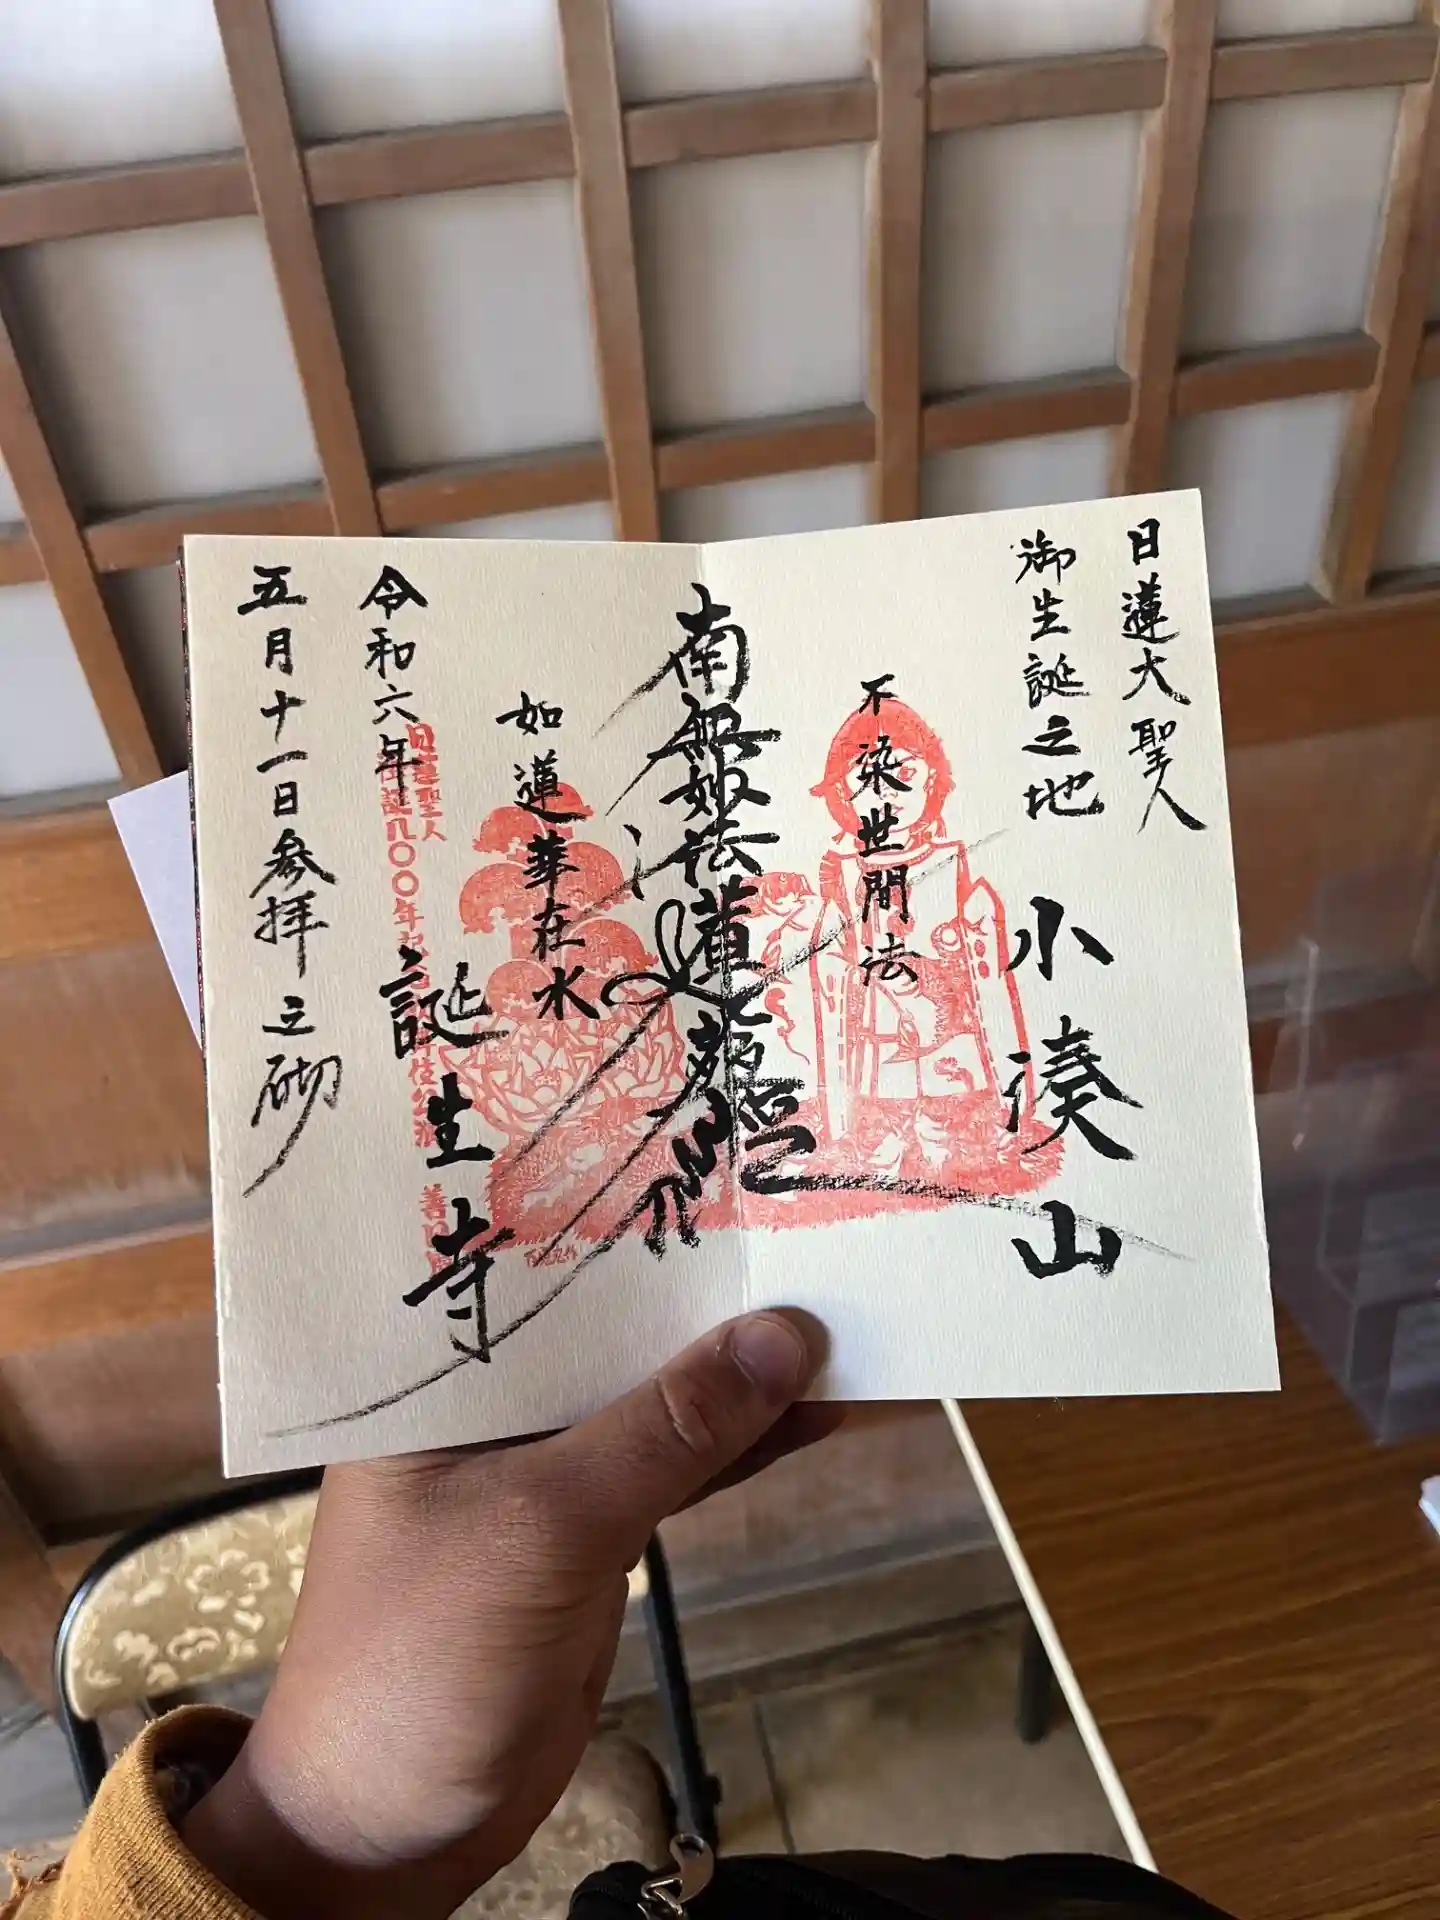 日蓮大聖人
御生誕之地
小湊山
不染世間法
南無妙法蓮華経
如蓮華在水
誕生寺
令和六年
五月十一日参拝之砌